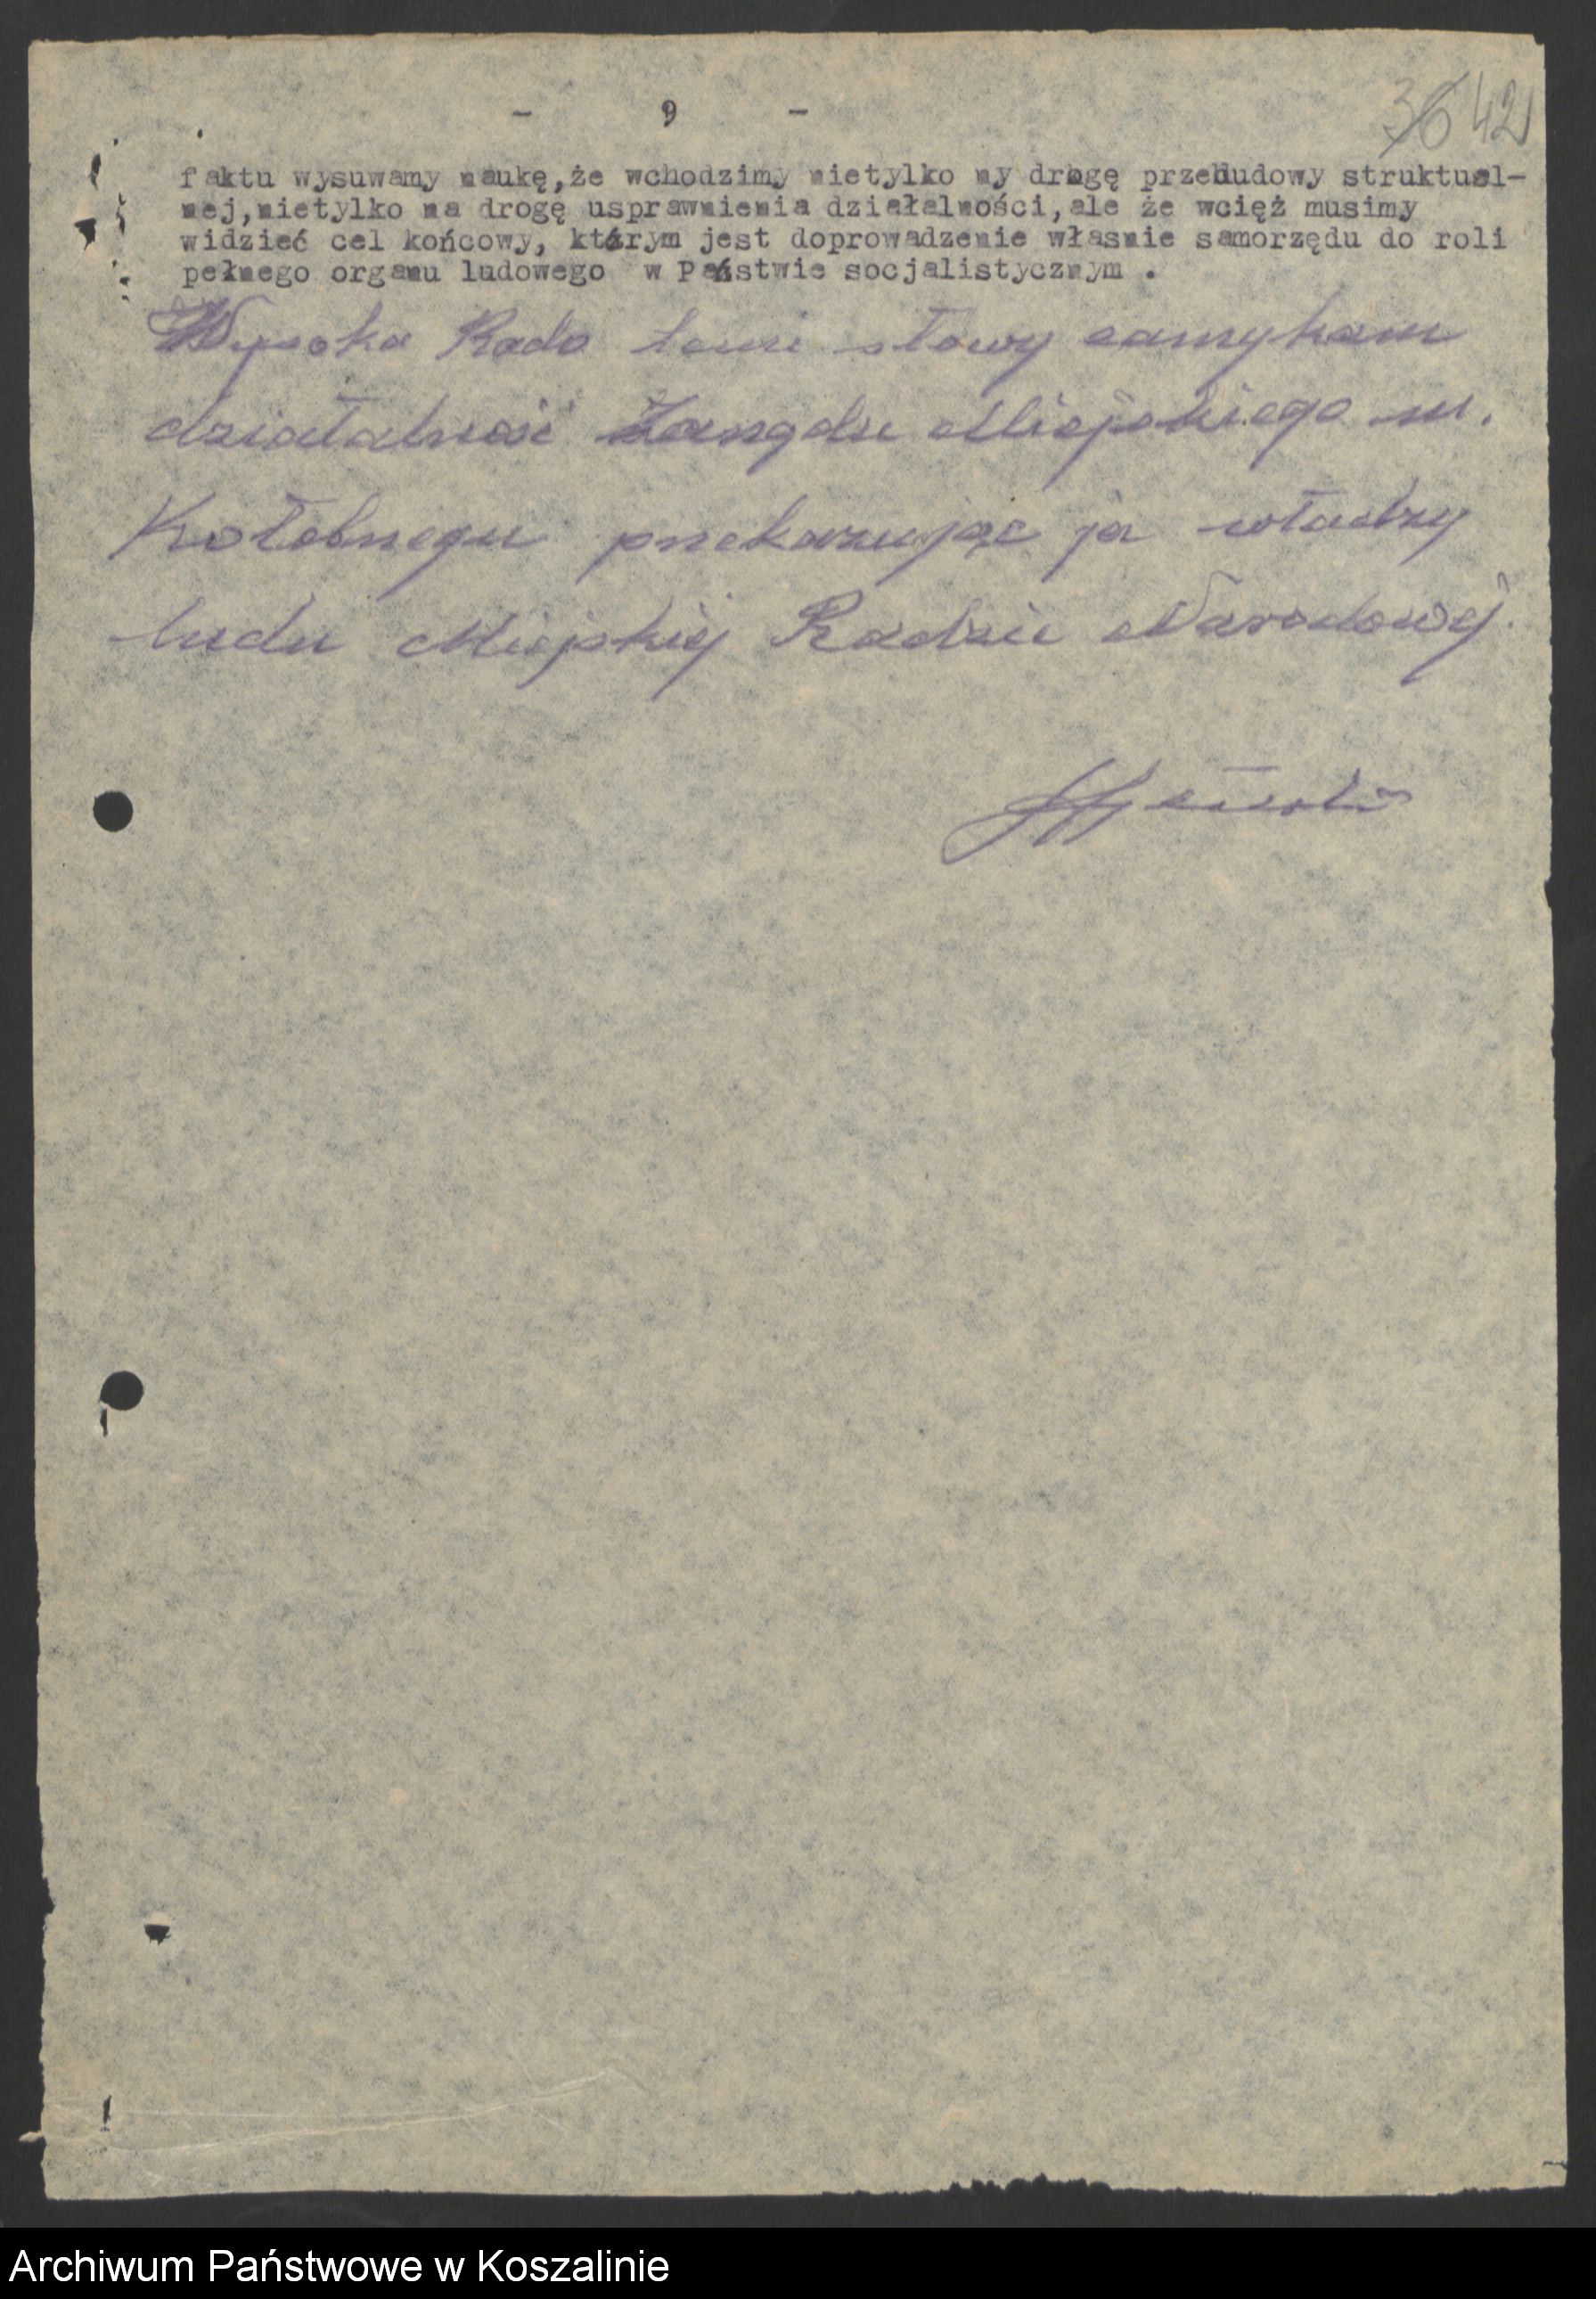 - 9 -
36 42
faktu wysuwamy naukę,że wchodzimy nietylko ny drogę przebudowy struktual-
nej,nietylko na drogę usprawnienia działalności,ale że wcięż musimy
widzieć cel końcowy, którym jest doprowadzenie własnie samorzędu do roli
pełnego organu ludowego w Państwie socjalistycznym .
Wysoka Rado temi słowy zamykam
działalność Zarządu Miejskiego m.
Kołobrzegu przekazując ja władzy
ludu Miejskiej Radzie Narodowej.
Archiwum Państwowe w Koszalinie